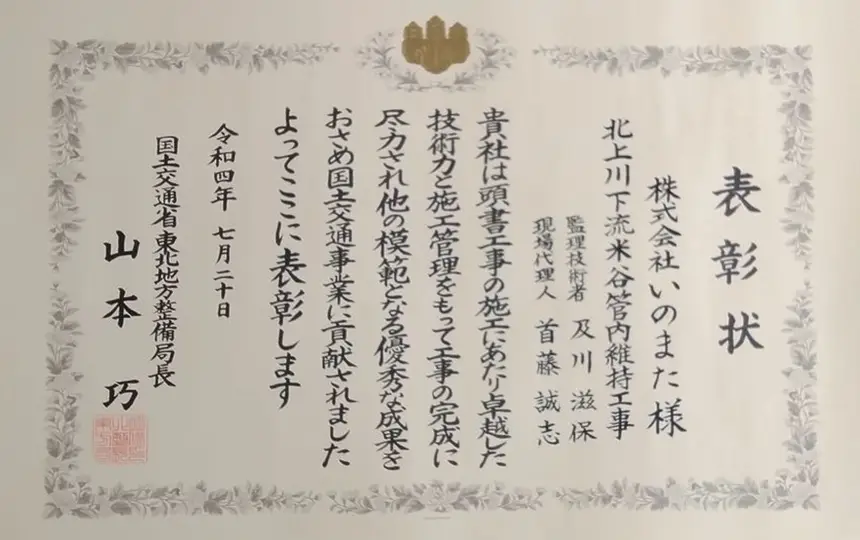 表彰状
株式会社いのまた様
北上川下流米谷管内維持工事
監理技術者 及川滋保
現場代理人 首藤誠志
貴社は頭書工事の施工にあたり卓越した
技術力と施工管理をもって工事の完成に
尽力され他の模範となる優秀な成果を
おさめ国土交通事業に貢献されました
よってここに表彰します
令和四年 七月二十日
国土交通省東北地方整備局長
山本 巧